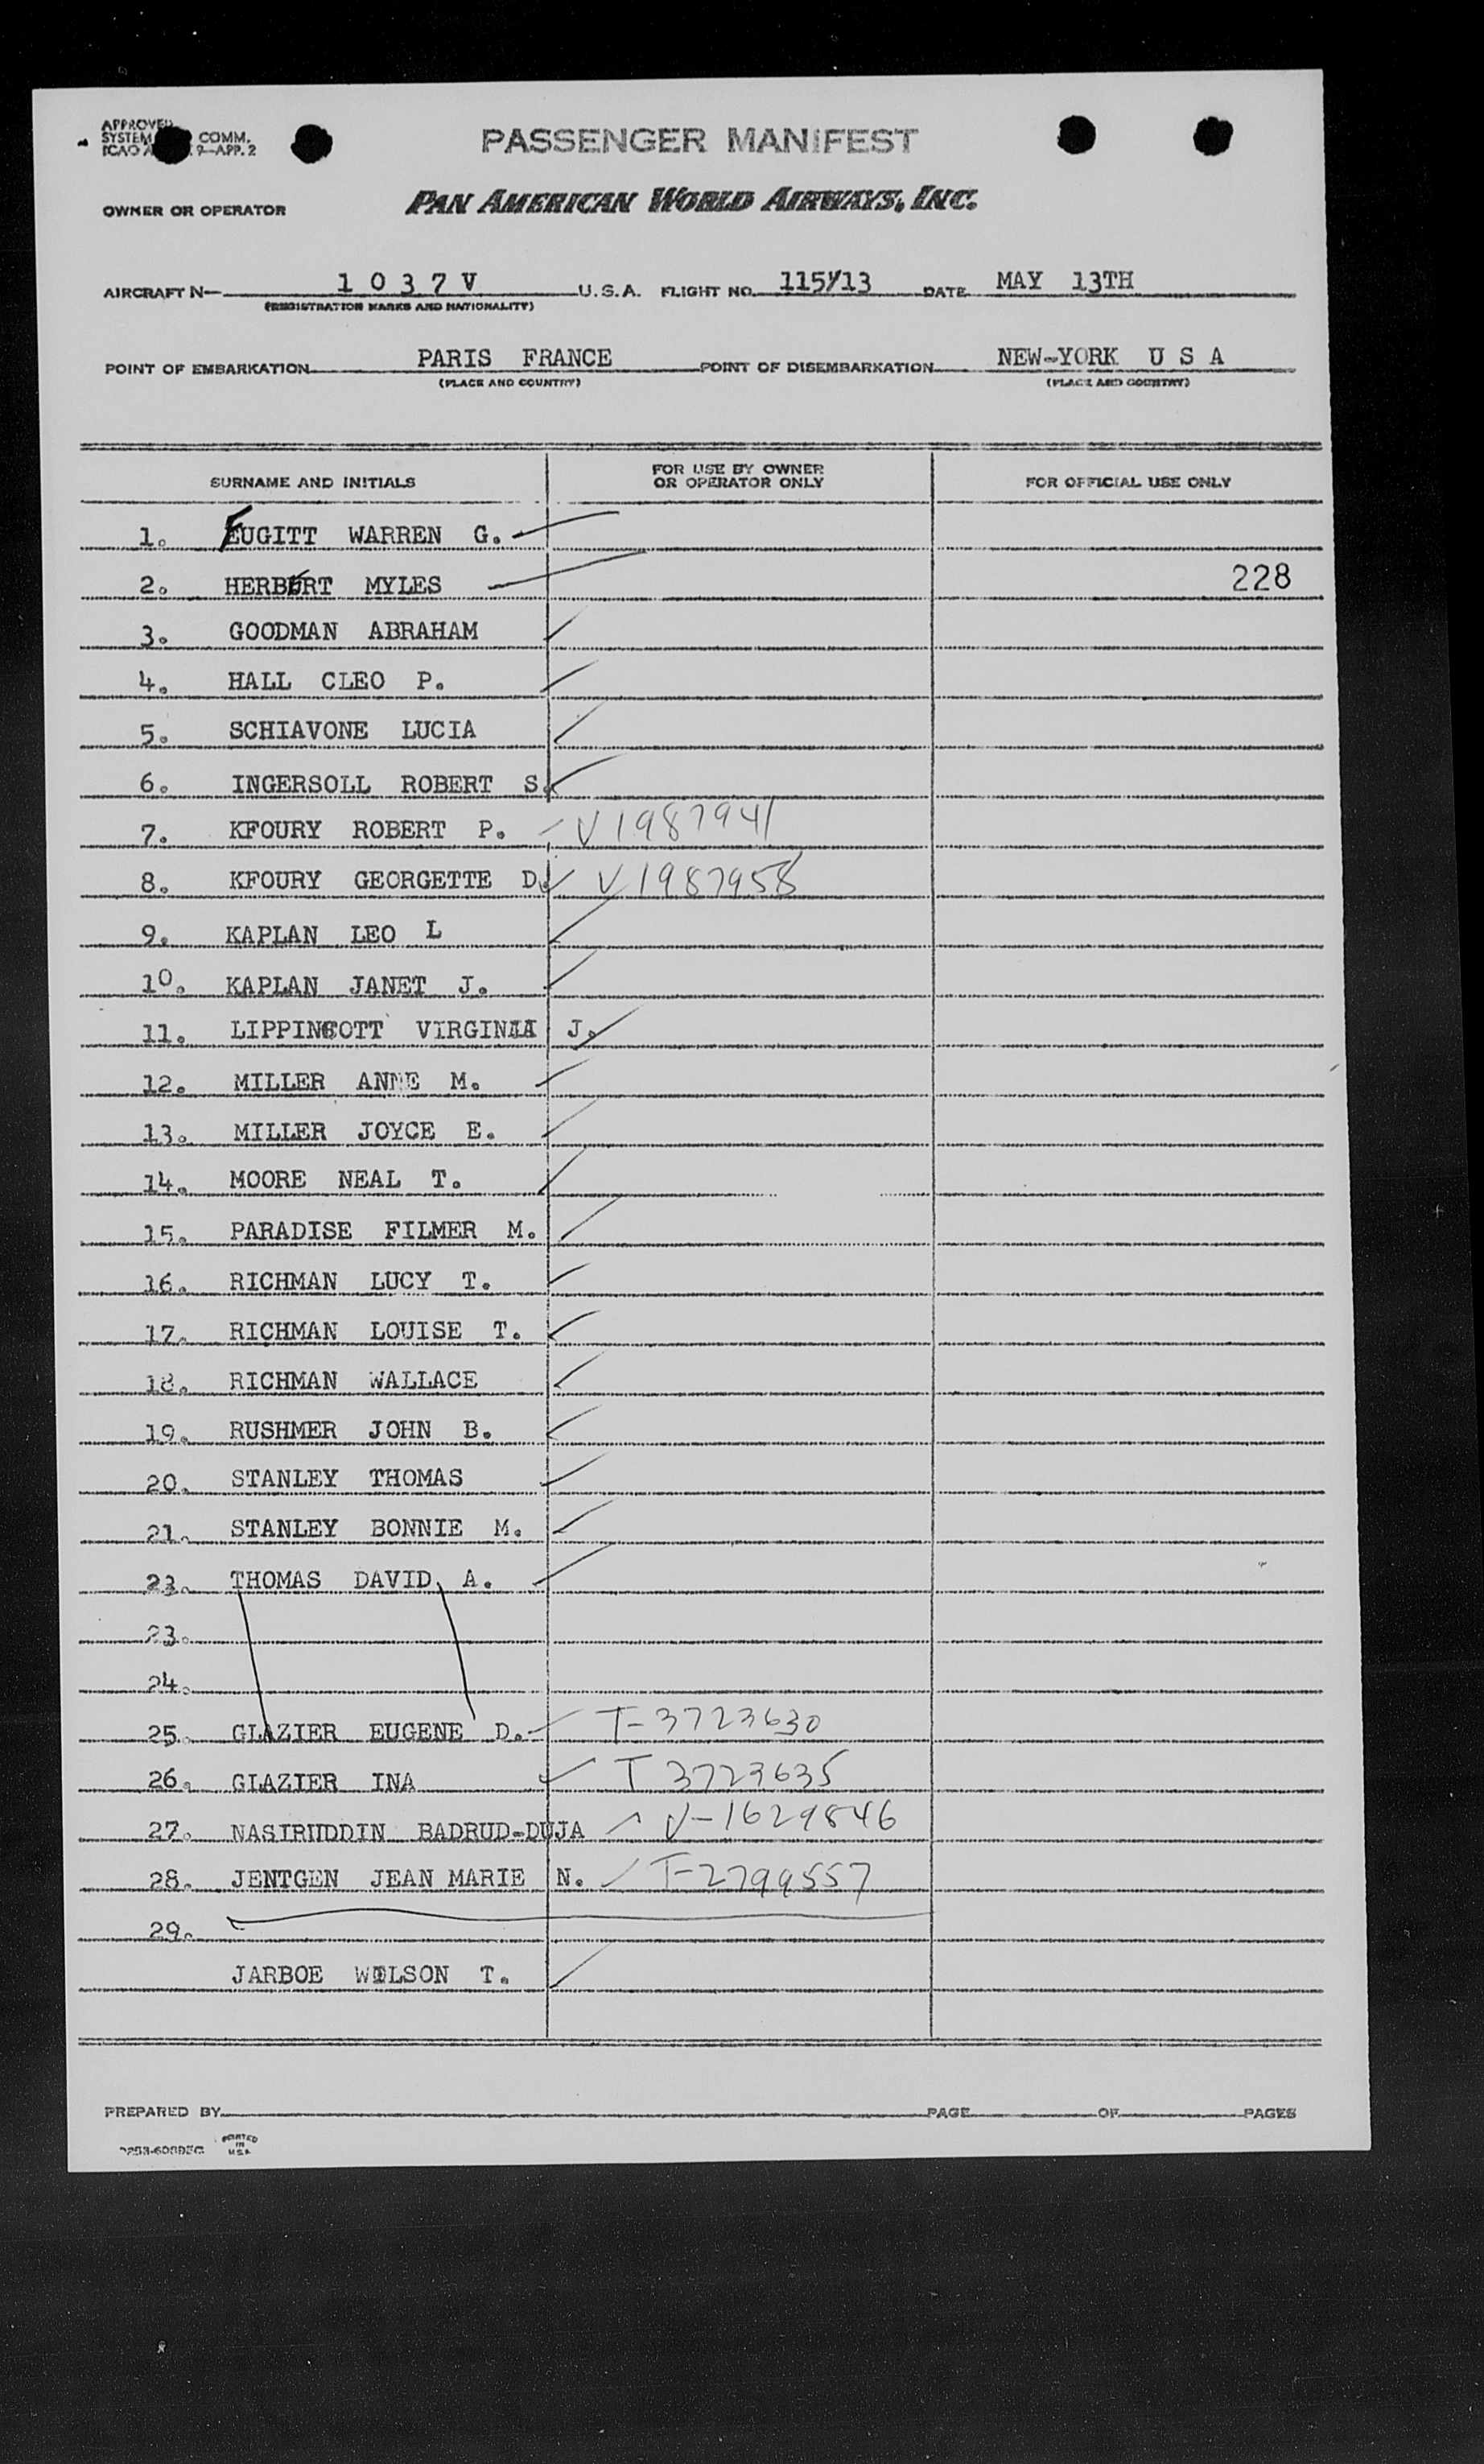 APPROVED
SYSTEM COMM.
ICAO A 9-APP. 2
PASSENGER MANIFEST
OWNER OR OPERATOR PAN AMERICAN WORLD AIRWAYS, INC.
AIRCRAFT N- 1 0 3 7 V U.S.A. FLIGHT NO. 115Y/13 DATE MAY 13TH
(REGISTRATION MARKS AND NATIONALITY)
POINT OF EMBARKATION PARIS FRANCE POINT OF DISEMBARKATION NEW-YORK U S A
(PLACE AND COUNTRY) (PLACE AND COUNTRY)
SURNAME AND INITIALS FOR USE BY OWNER OR OPERATOR ONLY FOR OFFICIAL USE ONLY
1. FUGITT WARREN G.
2. HERBERT MYLES 228
3. GOODMAN ABRAHAM
4. HALL CLEO P.
5. SCHIAVONE LUCIA
6. INGERSOLL ROBERT S.
7. KFOURY ROBERT P. V1987941
8. KFOURY GEORGETTE D. V1987958
9. KAPLAN LEO L
10. KAPLAN JANET J.
11. LIPPINCOTT VIRGINIA J.
12. MILLER ANNE M.
13. MILLER JOYCE E.
14. MOORE NEAL T.
15. PARADISE FILMER M.
16. RICHMAN LUCY T.
17. RICHMAN LOUISE T.
18. RICHMAN WALLACE
19. RUSHMER JOHN B.
20. STANLEY THOMAS
21. STANLEY BONNIE M.
22. THOMAS DAVID A.
23.
24.
25. GLAZIER EUGENE D. T-3723630
26. GLAZIER INA T 3723635
27. NASIRUDDIN BADRUD-DUJA V-1629846
28. JENTGEN JEAN MARIE N. T-2799557
29.
JARBOE WILSON T.
PREPARED BY PAGE OF PAGES
PRINTED IN U.S.A.